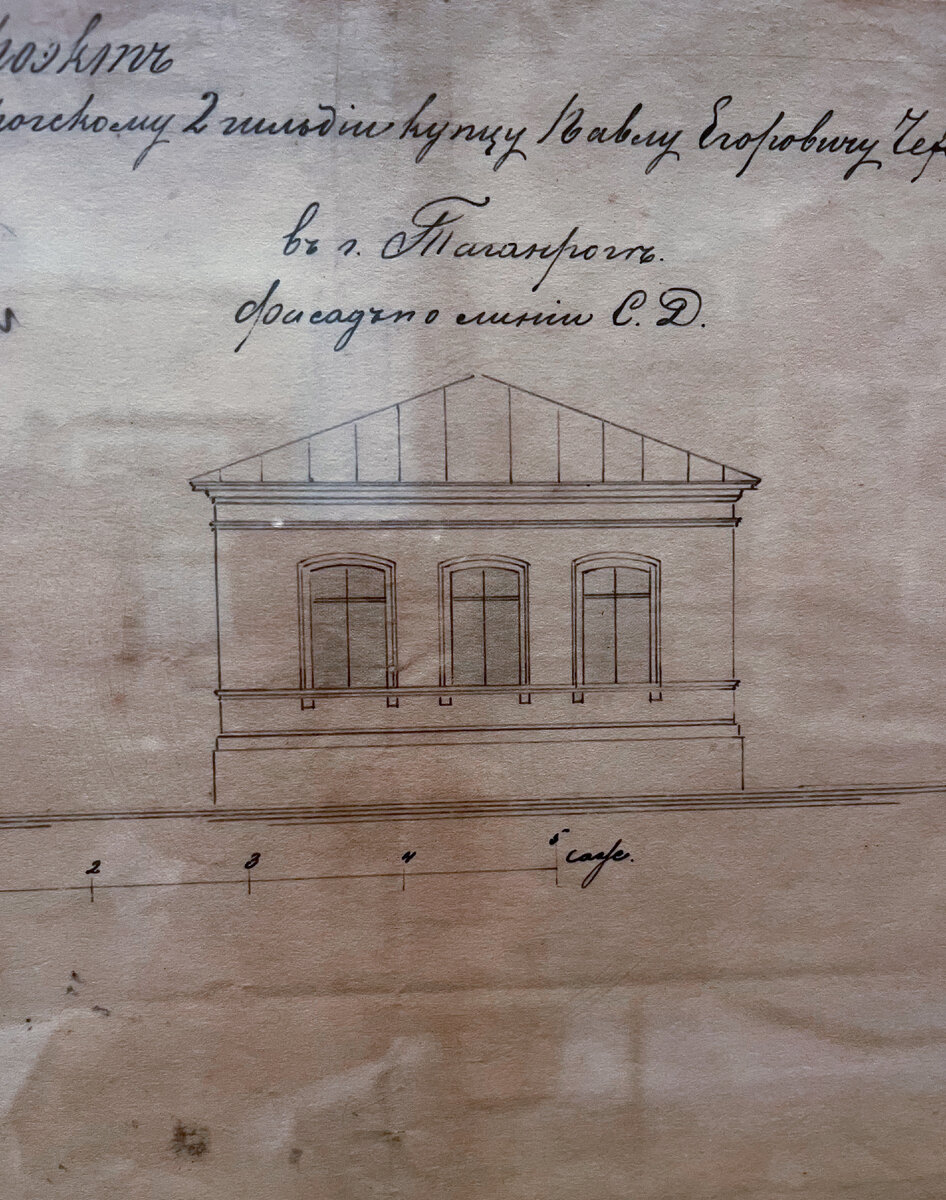 роэктъ
рогскому 2 гильдіи купцу Павлу Егоровичу Чех
въ г. Таганрогѣ.
Фасадъ по линіи С. Д.
2 3 4 5 саж.